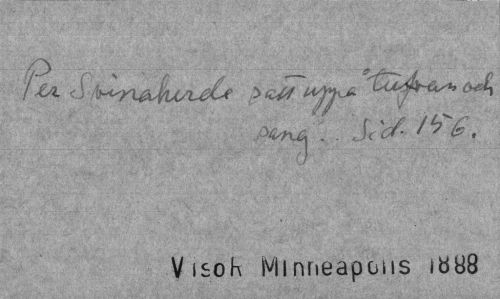 Per Svinaherde satt uppå tufvan och
sang... Sid. 156.
Visok Minneapolis 1888